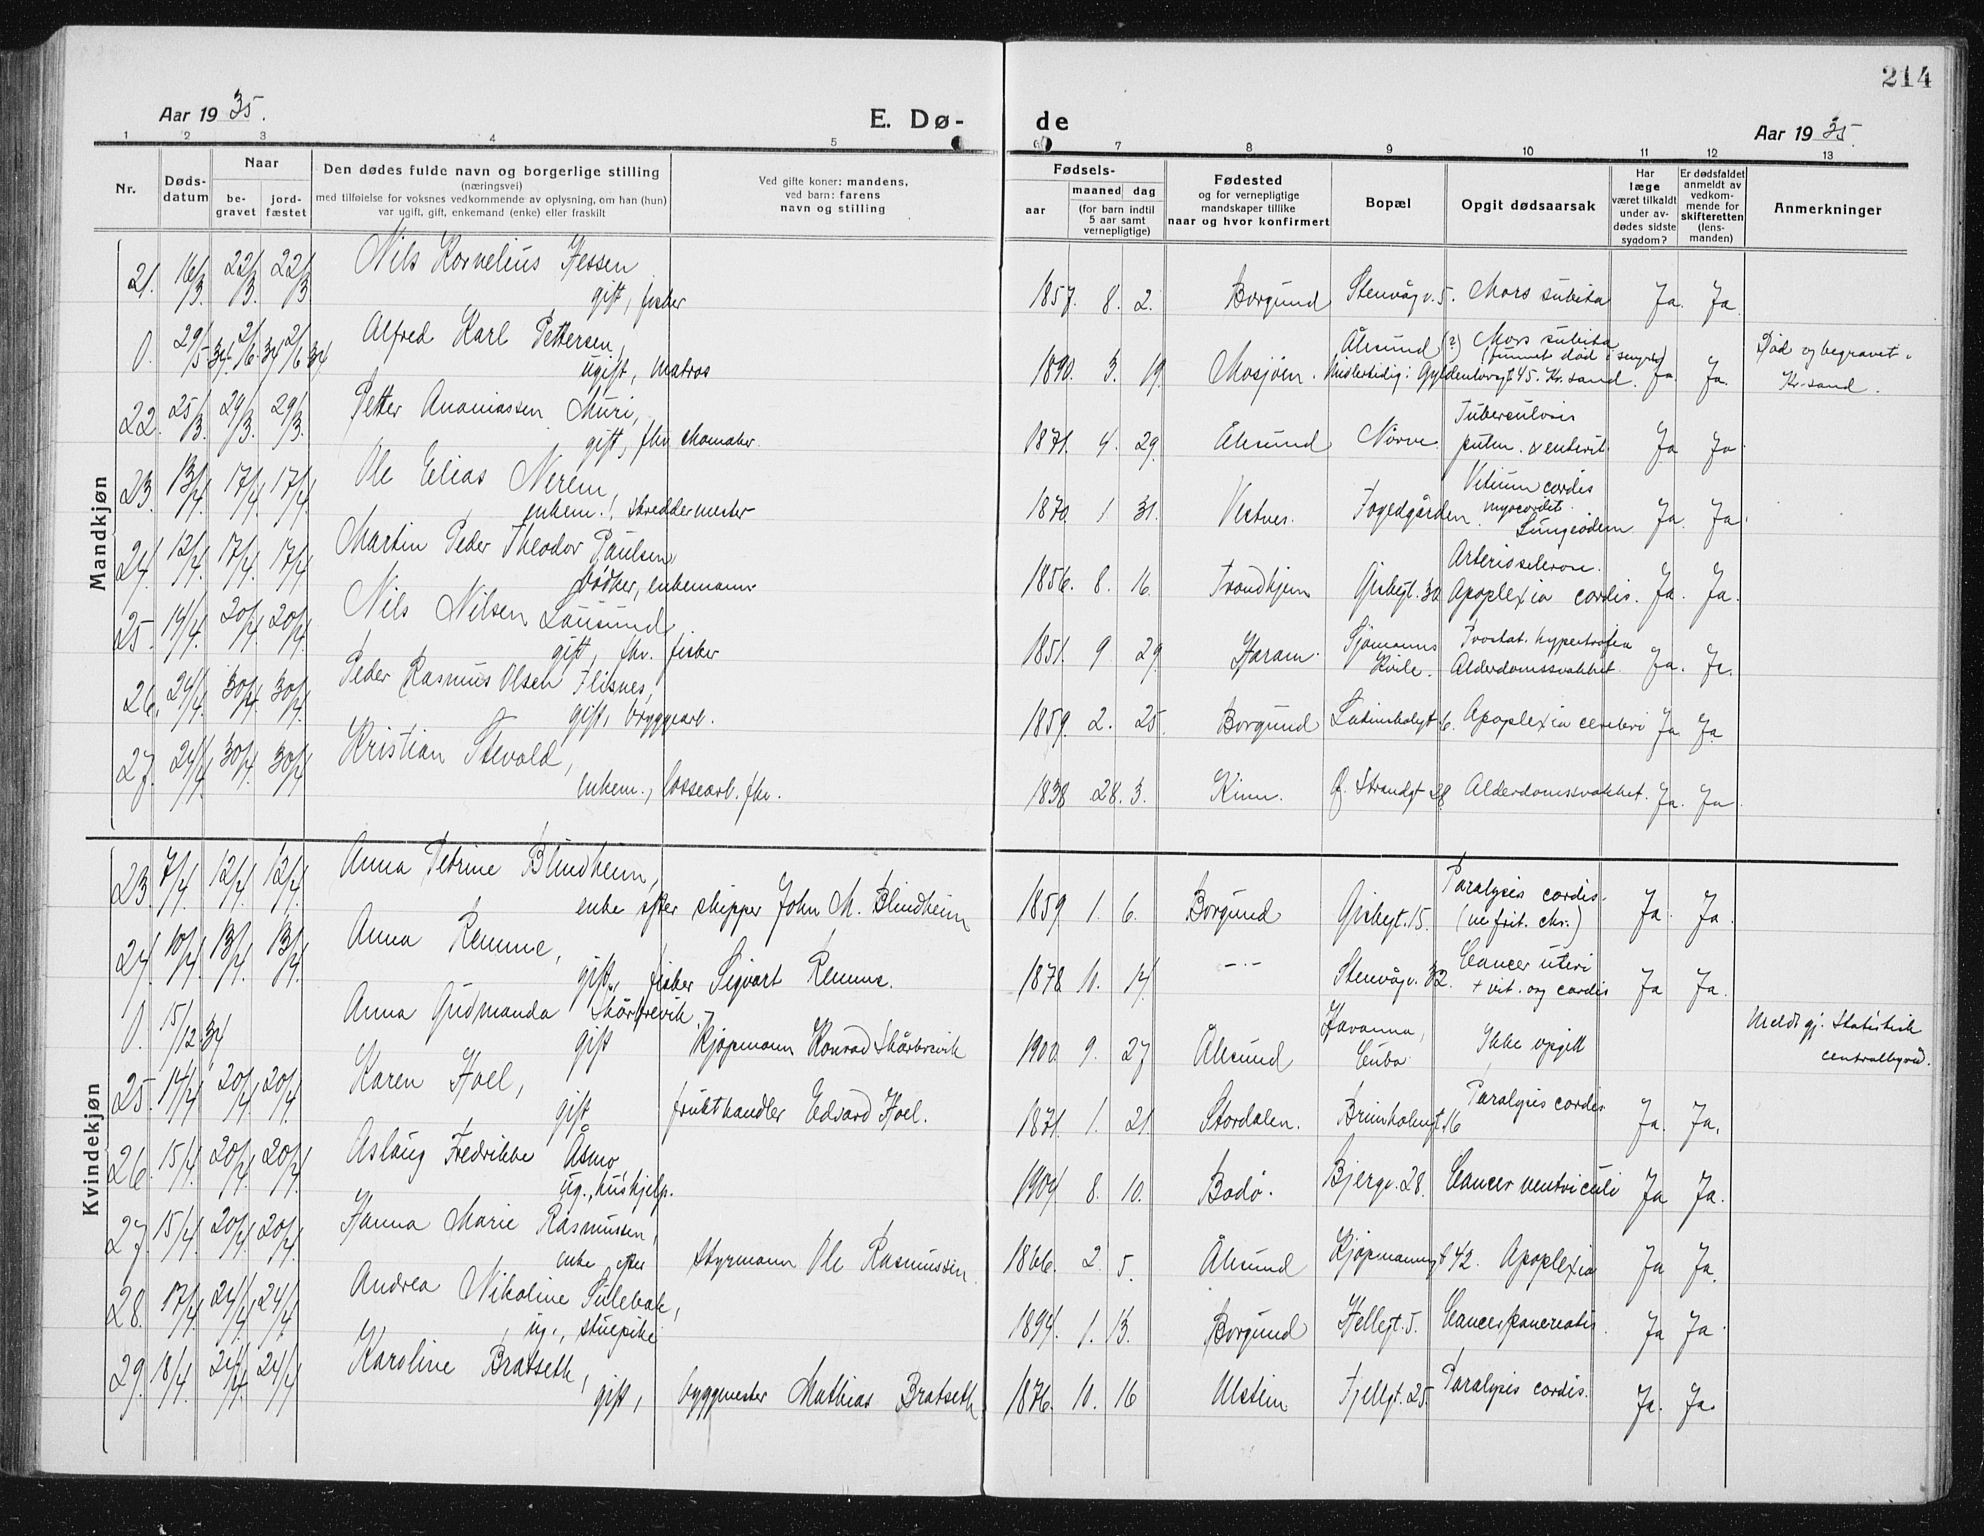 214
Aar 1935.
E. Dø-
de
Aar 1935.
1 2 3 4 5 6 7 8 9 10 11 12 13
Nr.
Døds-
datum
Naar
be-
gravet
jord-
fæstet
Den dødes fulde navn og borgerlige stilling
(næringsvei)
med tilføielse for voksnes vedkommende av oplysning, om han (hun)
var ugift, gift, enkemand (enke) eller fraskilt
Ved gifte koner: mandens,
ved barn: farens
navn og stilling
Fødsels-
aar
maaned dag
(for barn indtil
5 aar samt
vernepligtige)
Fødested
og for vernepligtige
mandskaper tillike
naar og hvor konfirmert
Bopæl
Opgit dødsaarsak
Har
læge
været tilkaldt
under av-
dødes sidste
sygdom?
Er dødsfaldet
anmeldt av
vedkom-
mende for
skifteretten
(lens-
manden)
Anmerkninger
Mandkjøn
21. 16/3. 22/3. 22/3 Nils Kornelius Jessen
gift, fisker
1857. 8. 2. Borgund Stenvågv. 5. Mors subita Ja. Ja.
0. 29/5 34 2/6. 34 2/6 34 Alfred Karl Pettersen,
ugift, matros
1890. 3. 19. Mosjøen. Ålesund (?) Mors subita
(funnet død i sengen)
Midlertidig: Gyldenløvsgt 45. Kr.sand. Ja. Ja.
Død og begravet i
Kr.sand.
22. 25/3. 29/3. 29/3. Petter Ananiassen Muri,
gift, fhv. skomaker.
1871. 4. 29. Ålesund Nørve Tuberculosis
pulm. & enterit. Ja Ja
23. 13/4. 17/4. 17/4. Ole Elias Nerem,
enkem., skreddermester
1870. 1. 31. Vestnes. Fogedgården. Vitium cordis
myocardit.
Lungeødem. Ja. Ja.
24. 12/4. 17/4. 17/4. Martin Peder Theodor Paulsen
bødker, enkemann
1856. 8. 16. Trondhjem 30 Arteriosclerose.
Apoplexia cordis. Ja. Ja.
25. 14/4. 20/4. 20/4. Nils Nilsen Lausund,
gift, fhv. fisker
1851. 9. 29 Haram. Sjømanns
Kvile. Prostat. hypertrofia
Alderdomssvakhet. Ja. Ja.
26. 24/4. 30/4. 30/4. Peder Rasmus Olsen Flisnes,
gift, bryggearb.
1859. 2. 25. Borgund 6. Apoplexia cerebri Ja Ja
27. 24/4. 30/4. 30/4. Kristian Stevold,
enkem., lossearb. fhv.
1838 28. 3. Kinn. Ø. Strandgt 28 Alderdomssvakhet. Ja. Ja
Kvindekjøn
23. 7/4. 12/4. 12/4. Anna Petrine Blindheim,
enke efter skipper John M. Blindheim
1859 1. 6. Borgund 15. Paralysis cordis.
(nefrit. chr.) Ja. Ja.
24. 10/4. 13/4. 13/4. Anna Remme,
gift, fisker Sigvart Remme.
1878. 10. 14. —"— Stenvågv. 32. Cancer uteri
+ vit. org cordis Ja Ja.
0. 15/12. 34 Anna Gudmanda Skårbrevik,
gift Kjøpmann Konrad Skårbrevik
1900. 9. 27 Ålesund Havanna,
Cuba Ikke opgitt
Meldt gj. Statistisk
centralbyrå.
25. 14/4. 20/4. 20/4. Karen Hoel,
gift frukthandler Edvard Hoel.
1871. 1. 21. Stordalen. Brunholmgt. 16 Paralysis cordis Ja. Ja.
26. 15/4. 20/4. 20/4. Aslaug Fredrikke Åsmo,
ug., huskjelp.
1904 8. 10. Bodø. Bjergv. 28. Cancer ventriculi Ja Ja.
27. 15/4. 20/4. 20/4. Hanna Marie Rasmussen,
enke efter styrmann Ole Rasmussen
1866. 2. 5. Ålesund Kjøpmannsgt 42. Apoplexia Ja Ja.
28. 17/4. 24/4. 24/4. Andrea Nikoline Sulebak,
ug., stuepike
1894. 1. 13. Borgund Hellegt. 5. Cancer pancreatis. Ja Ja
29. 18/4. 24/4. 24/4 Karoline Bratseth,
gift, byggmester Mathias Bratseth
1876. 10. 16 Ulstein Fjellgt. 25. Paralysis cordis. Ja. Ja.